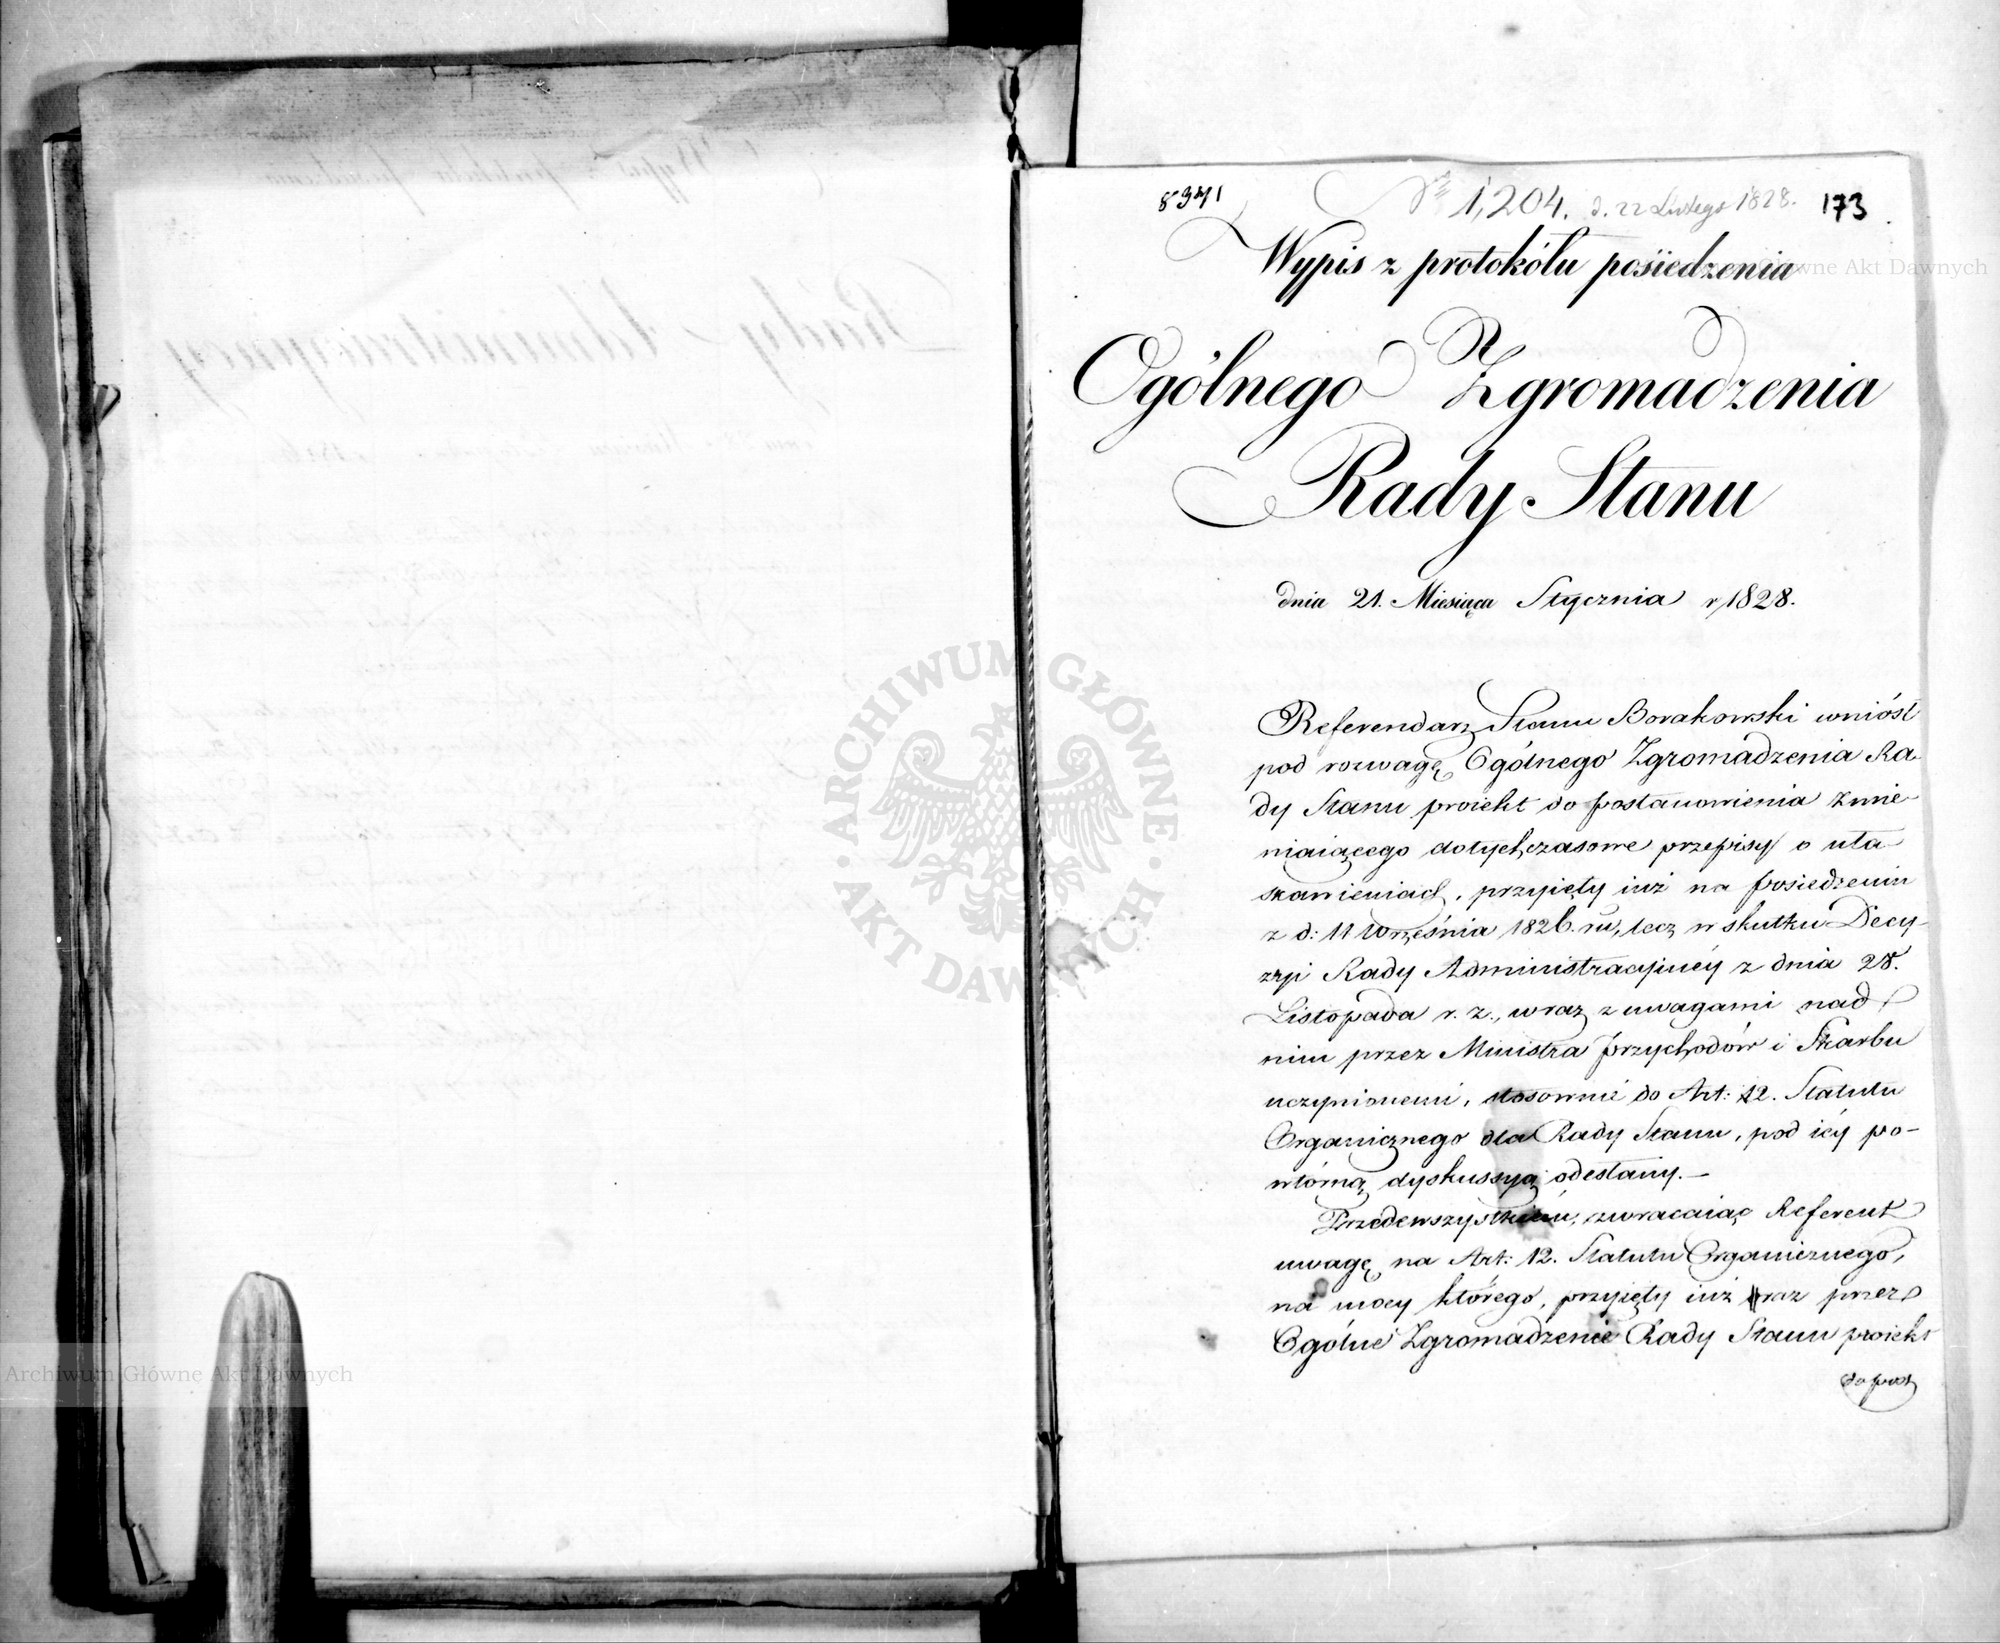 8941
No 1,204. d. 22 Lutego 1828.
173
Wypis z protokółu posiedzenia
Ogólnego Zgromadzenia
Rady Stanu
dnia 21. Miesiąca Stycznia r 1828.
Referendarz Stanu Borakowski wniósł
pod rozwagę Ogólnego Zgromadzenia Ra-
dy Stanu proiekt do postanowienia zmie-
niaiącego dotychczasowe przepisy o uła-
skawieniach, przyięty iuż na posiedzeniu
z d: 11 Września 1826. ru, lecz w skutku Decy-
zyi Rady Administracyinéy z dnia 28.
Listopada r. z., wraz z uwagami nad
nim przez Ministra Przychodów i Skarbu
uczynionemi, stosownie do Art: 12. Statutu
Organicznego dla Rady Stanu, pod iéy po-
wtórną dyskussyą odesłany.—
Przedewszystkiém, zwracaiąc Referent
uwagę na Art: 12. Statutu Organicznego,
na mocy którego, przyięty iuż raz przez
Ogólne Zgromadzenie Rady Stanu proiekt
do post
ARCHIWUM GŁÓWNE AKT DAWNYCH
Archiwum Główne Akt Dawnych
Główne Akt Dawnych